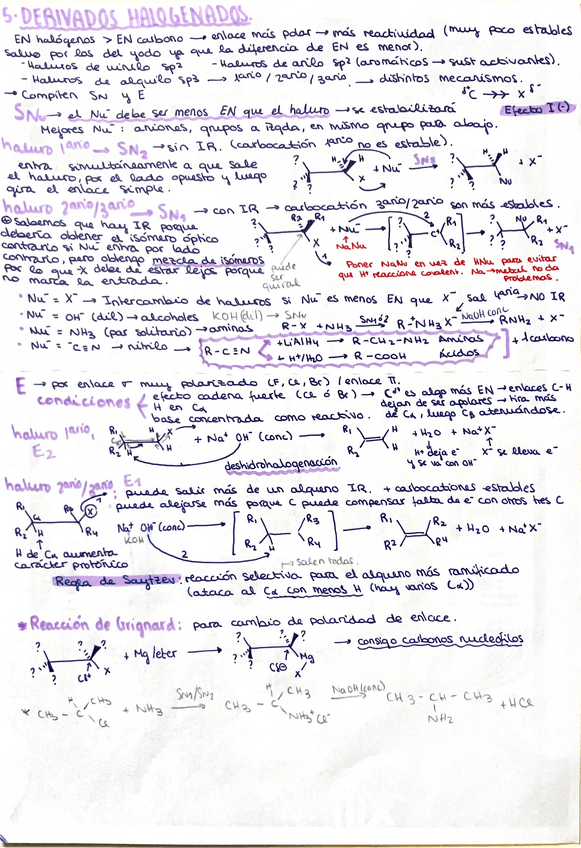 5. DERIVADOS HALOGENADOS.
EN halógenos > EN carbono → enlace más polar → más reactividad (muy poco estables
salvo por los del yodo ya que la diferencia de EN es menor).
- Haluros de vinilo sp² - Haluros de arilo sp² (aromáticos → sust activantes).
- Haluros de alquilo sp³ → 1ario / 2ario / 3ario. → distintos mecanismos.
→ Compiten SN y E δ⁺C →→ X δ⁻
SN → el Nu⁻ debe ser menos EN que el haluro → se estabilizará Efecto I(-)
Mejores Nu⁻: aniones, grupos a izqda, en mismo grupo para abajo.
haluro 1ario → SN2 → sin IR. (carbocatión 1ario no es estable).
entra simultáneamente a que sale
el haluro, por el lado opuesto y luego
gira el enlace simple.
+ Nu⁻ SN2 + X⁻
haluro 2ario/3ario → SN1 → con IR → carbocatión 3ario/2ario son más estables.
Sabemos que hay IR porque
debería obtener el isómero óptico
contrario si Nu⁻ entra por lado
contrario, pero obtengo mezcla de isómeros
por lo que X debe de estar lejos porque
no marca la entrada.
puede
ser
quiral
+ Nu⁻ → + X⁻
NaNu SN1
Poner NaNu en vez de HNu para evitar
que H⁺ reaccione covalent. Na → metal no da
problemas.
· Nu⁻ = X⁻ → Intercambio de haluros si Nu⁻ es menos EN que X⁻ sal 1ario → NO IR
· Nu⁻ = OH⁻ (dil) → alcoholes KOH (dil) → SNu
· Nu⁻ = NH₃ (par solitario) → aminas R-X + NH₃ SN1 ó 2 R-⁺NH₃ X⁻ NaOH conc RNH₂ + X⁻
· Nu⁻ = ⁻C≡N → nitrilo → R-C≡N + LiAlH₄ → R-CH₂-NH₂ Aminas
+ H⁺/H₂O → R-COOH Ácidos
+ 1 carbono
E → por enlace σ muy polarizado (F, Cl, Br) / enlace π.
condiciones
efecto cadena fuerte (Cl ó Br) → Cδ⁺ es algo más EN → enlaces C-H
dejan de ser apolares → tira más
de Cα, luego Cβ atenuándose.
H en Cα
base concentrada como reactivo.
haluro 1ario,
E2
R₁ R₂ H X + Na⁺ OH⁻ (conc) → R₁ R₂ H H + H₂O + Na⁺X⁻
H⁺ deja e⁻
y se va con OH⁻
X⁻ se lleva e⁻
deshidrohalogenación
haluro 2ario/3ario, E1
: puede salir más de un alqueno IR. + carbocationes estables
puede alejarse más porque C puede compensar falta de e⁻ con otros tres C
R₁ R₂ H R₃ X R₄
Na⁺ OH⁻ (conc)
KOH
2
R₁ R₂ H R₃ R₄ → R₁ R₂ R₂ R₄ + H₂O + Na⁺X⁻
H de Cα aumenta
carácter protónico
salen todas.
Regla de Saytzev: reacción selectiva para el alqueno más ramificado
(ataca al Cα con menos H (hay varios Cα))
* Reacción de Grignard: para cambio de polaridad de enlace.
+ Mg/eter → Mg → consigo carbonos nucleófilos
Cδ⁺ X Cδ⊖ X
* CH₃ - C H CH₃ Cl + NH₃ SN1/SN2 CH₃ - C H CH₃ NH₃⁺Cl⁻ NaOH (conc) CH₃ - CH - CH₃ + HCl
NH₂